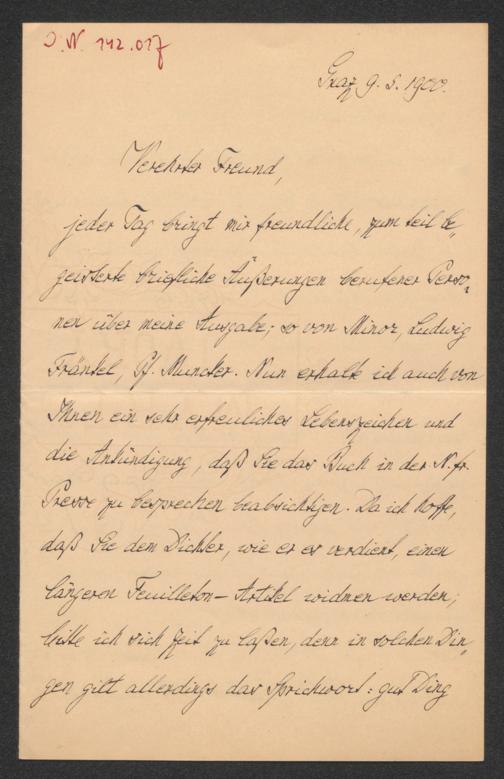 I. N. 142.017
Graz 9. 5. 1900.
Verehrter Freund,
jeder Tag bringt mir freundliche, zum teil be-
geisterte briefliche Äußerungen berufener Perso-
nen über meine Ausgabe; so von Minor, Ludwig
Fränkel, Pf. Muncker. Nun erhalte ich auch von
Ihnen ein sehr erfreuliches Lebenszeichen und
die Ankündigung, daß Sie das Buch in der N. fr.
Presse zu besprechen beabsichtigen. Da ich hoffe,
daß Sie dem Dichter, wie er es verdient, einen
längeren Feuilleton-Artikel widmen werden;
bitte ich sich Zeit zu laßen, denn in solchen Din-
gen gilt allerdings das Sprichwort: gut Ding